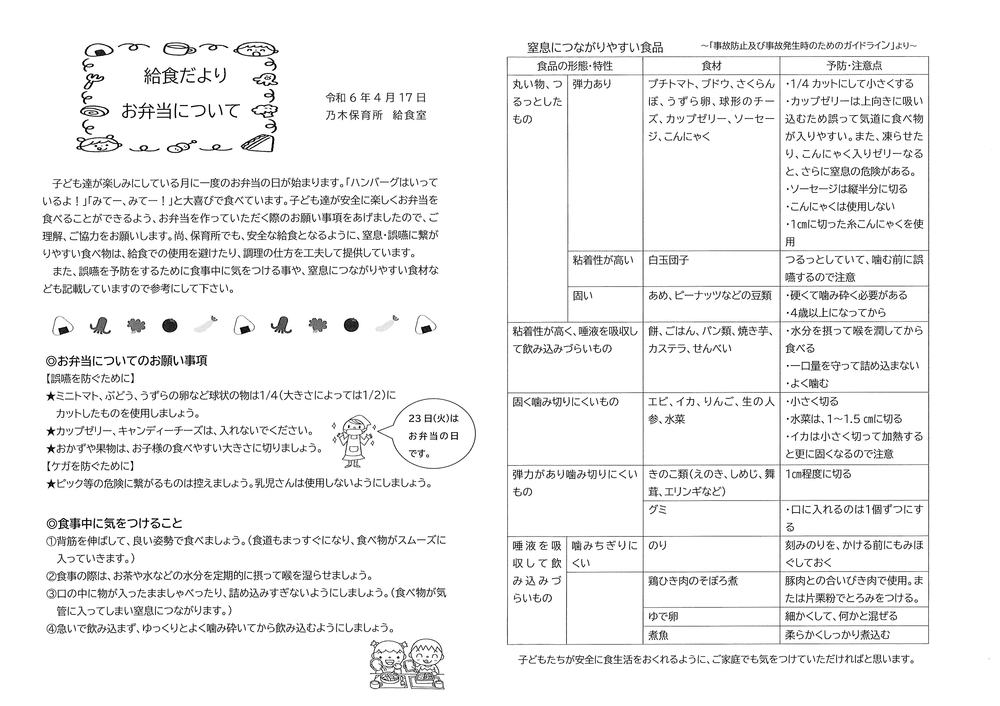 給食だより
お弁当について
令和6年4月17日
乃木保育所 給食室
子ども達が楽しみにしている月に一度のお弁当の日が始まります。「ハンバーグはいって
いるよ!」「みてー、みてー!」と大喜びで食べています。子ども達が安全に楽しくお弁当を
食べることができるよう、お弁当を作っていただく際のお願い事項をあげましたので、ご
理解、ご協力をお願いします。尚、保育所でも、安全な給食となるように、窒息・誤嚥に繋が
りやすい食べ物は、給食での使用を避けたり、調理の仕方を工夫して提供しています。
また、誤嚥を予防をするために食事中に気をつける事や、窒息につながりやすい食材な
ども記載していますので参考にして下さい。
◎お弁当についてのお願い事項
【誤嚥を防ぐために】
★ミニトマト、ぶどう、うずらの卵など球状の物は1/4(大きさによっては1/2)に
カットしたものを使用しましょう。
★カップゼリー、キャンディーチーズは、入れないでください。
★おかずや果物は、お子様の食べやすい大きさに切りましょう。
【ケガを防ぐために】
★ピック等の危険に繋がるものは控えましょう。乳児さんは使用しないようにしましょう。
23日(火)は
お弁当の日
です。
◎食事中に気をつけること
①背筋を伸ばして、良い姿勢で食べましょう。(食道もまっすぐになり、食べ物がスムーズに
入っていきます。)
②食事の際は、お茶や水などの水分を定期的に摂って喉を湿らせましょう。
③口の中に物が入ったまましゃべったり、詰め込みすぎないようにしましょう。(食べ物が気
管に入ってしまい窒息につながります。)
④急いで飲み込まず、ゆっくりとよく噛み砕いてから飲み込むようにしましょう。
窒息につながりやすい食品 ~「事故防止及び事故発生時のためのガイドライン」より~
食品の形態・特性 食材 予防・注意点
丸い物、つ
るっとした
もの
弾力あり
プチトマト、ブドウ、さくらん
ぼ、うずら卵、球形のチー
ズ、カップゼリー、ソーセー
ジ、こんにゃく
・1/4カットにして小さくする
・カップゼリーは上向きに吸い
込むため誤って気道に食べ物
が入りやすい。また、凍らせた
り、こんにゃく入りゼリーなる
と、さらに窒息の危険がある。
・ソーセージは縦半分に切る
・こんにゃくは使用しない
・1㎝に切った糸こんにゃくを使
用
粘着性が高い
白玉団子
つるっとしていて、噛む前に誤
嚥するので注意
固い
あめ、ピーナッツなどの豆類
・硬くて噛み砕く必要がある
・4歳以上になってから
粘着性が高く、唾液を吸収し
て飲み込みづらいもの
餅、ごはん、パン類、焼き芋、
カステラ、せんべい
・水分を摂って喉を潤してから
食べる
・一口量を守って詰め込まない
・よく噛む
固く噛み切りにくいもの
エビ、イカ、りんご、生の人
参、水菜
・小さく切る
・水菜は、1~1.5㎝に切る
・イカは小さく切って加熱する
と更に固くなるので注意
弾力があり噛み切りにくい
もの
きのこ類(えのき、しめじ、舞
茸、エリンギなど)
1㎝程度に切る
グミ
・口に入れるのは1個ずつにす
る
唾液を吸
収して飲
み込みづ
らいもの
噛みちぎりに
くい
のり
刻みのりを、かける前にもみほ
ぐしておく
鶏ひき肉のそぼろ煮
豚肉との合いびき肉で使用。ま
たは片栗粉でとろみをつける。
ゆで卵
細かくして、何かと混ぜる
煮魚
柔らかくしっかり煮込む
子どもたちが安全に食生活をおくれるように、ご家庭でも気をつけていただければと思います。